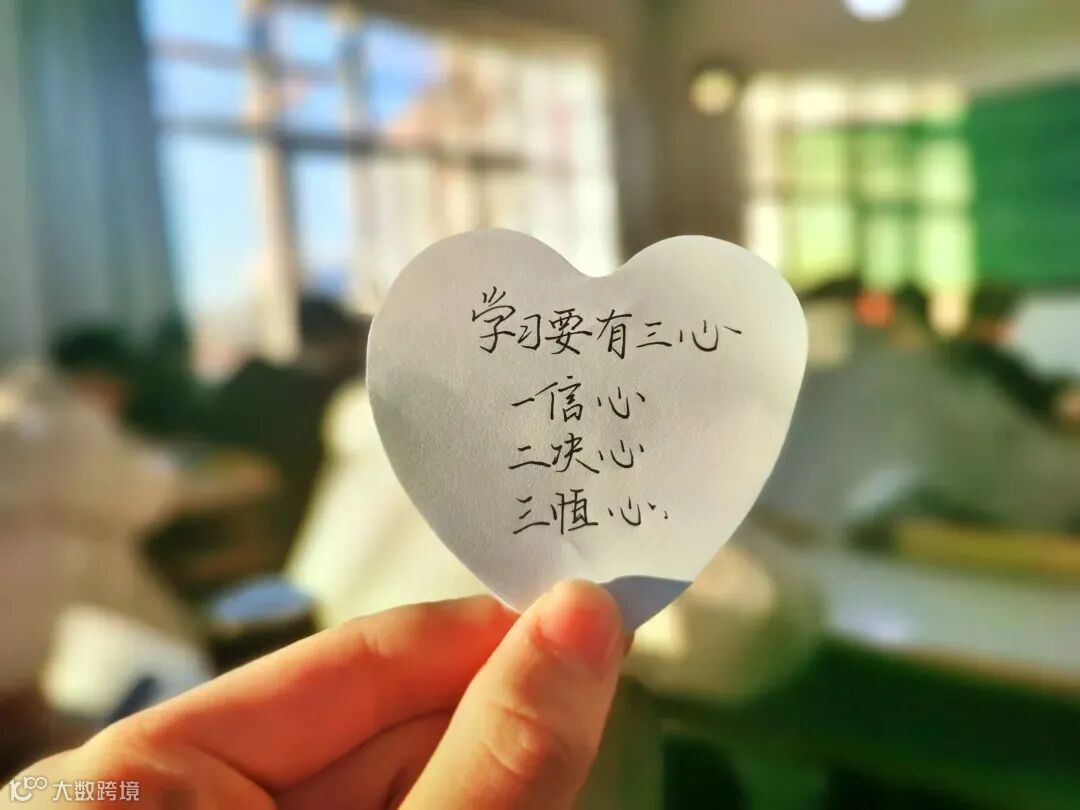 学习要有三心
一信心
二决心
三恒心
大数跨境